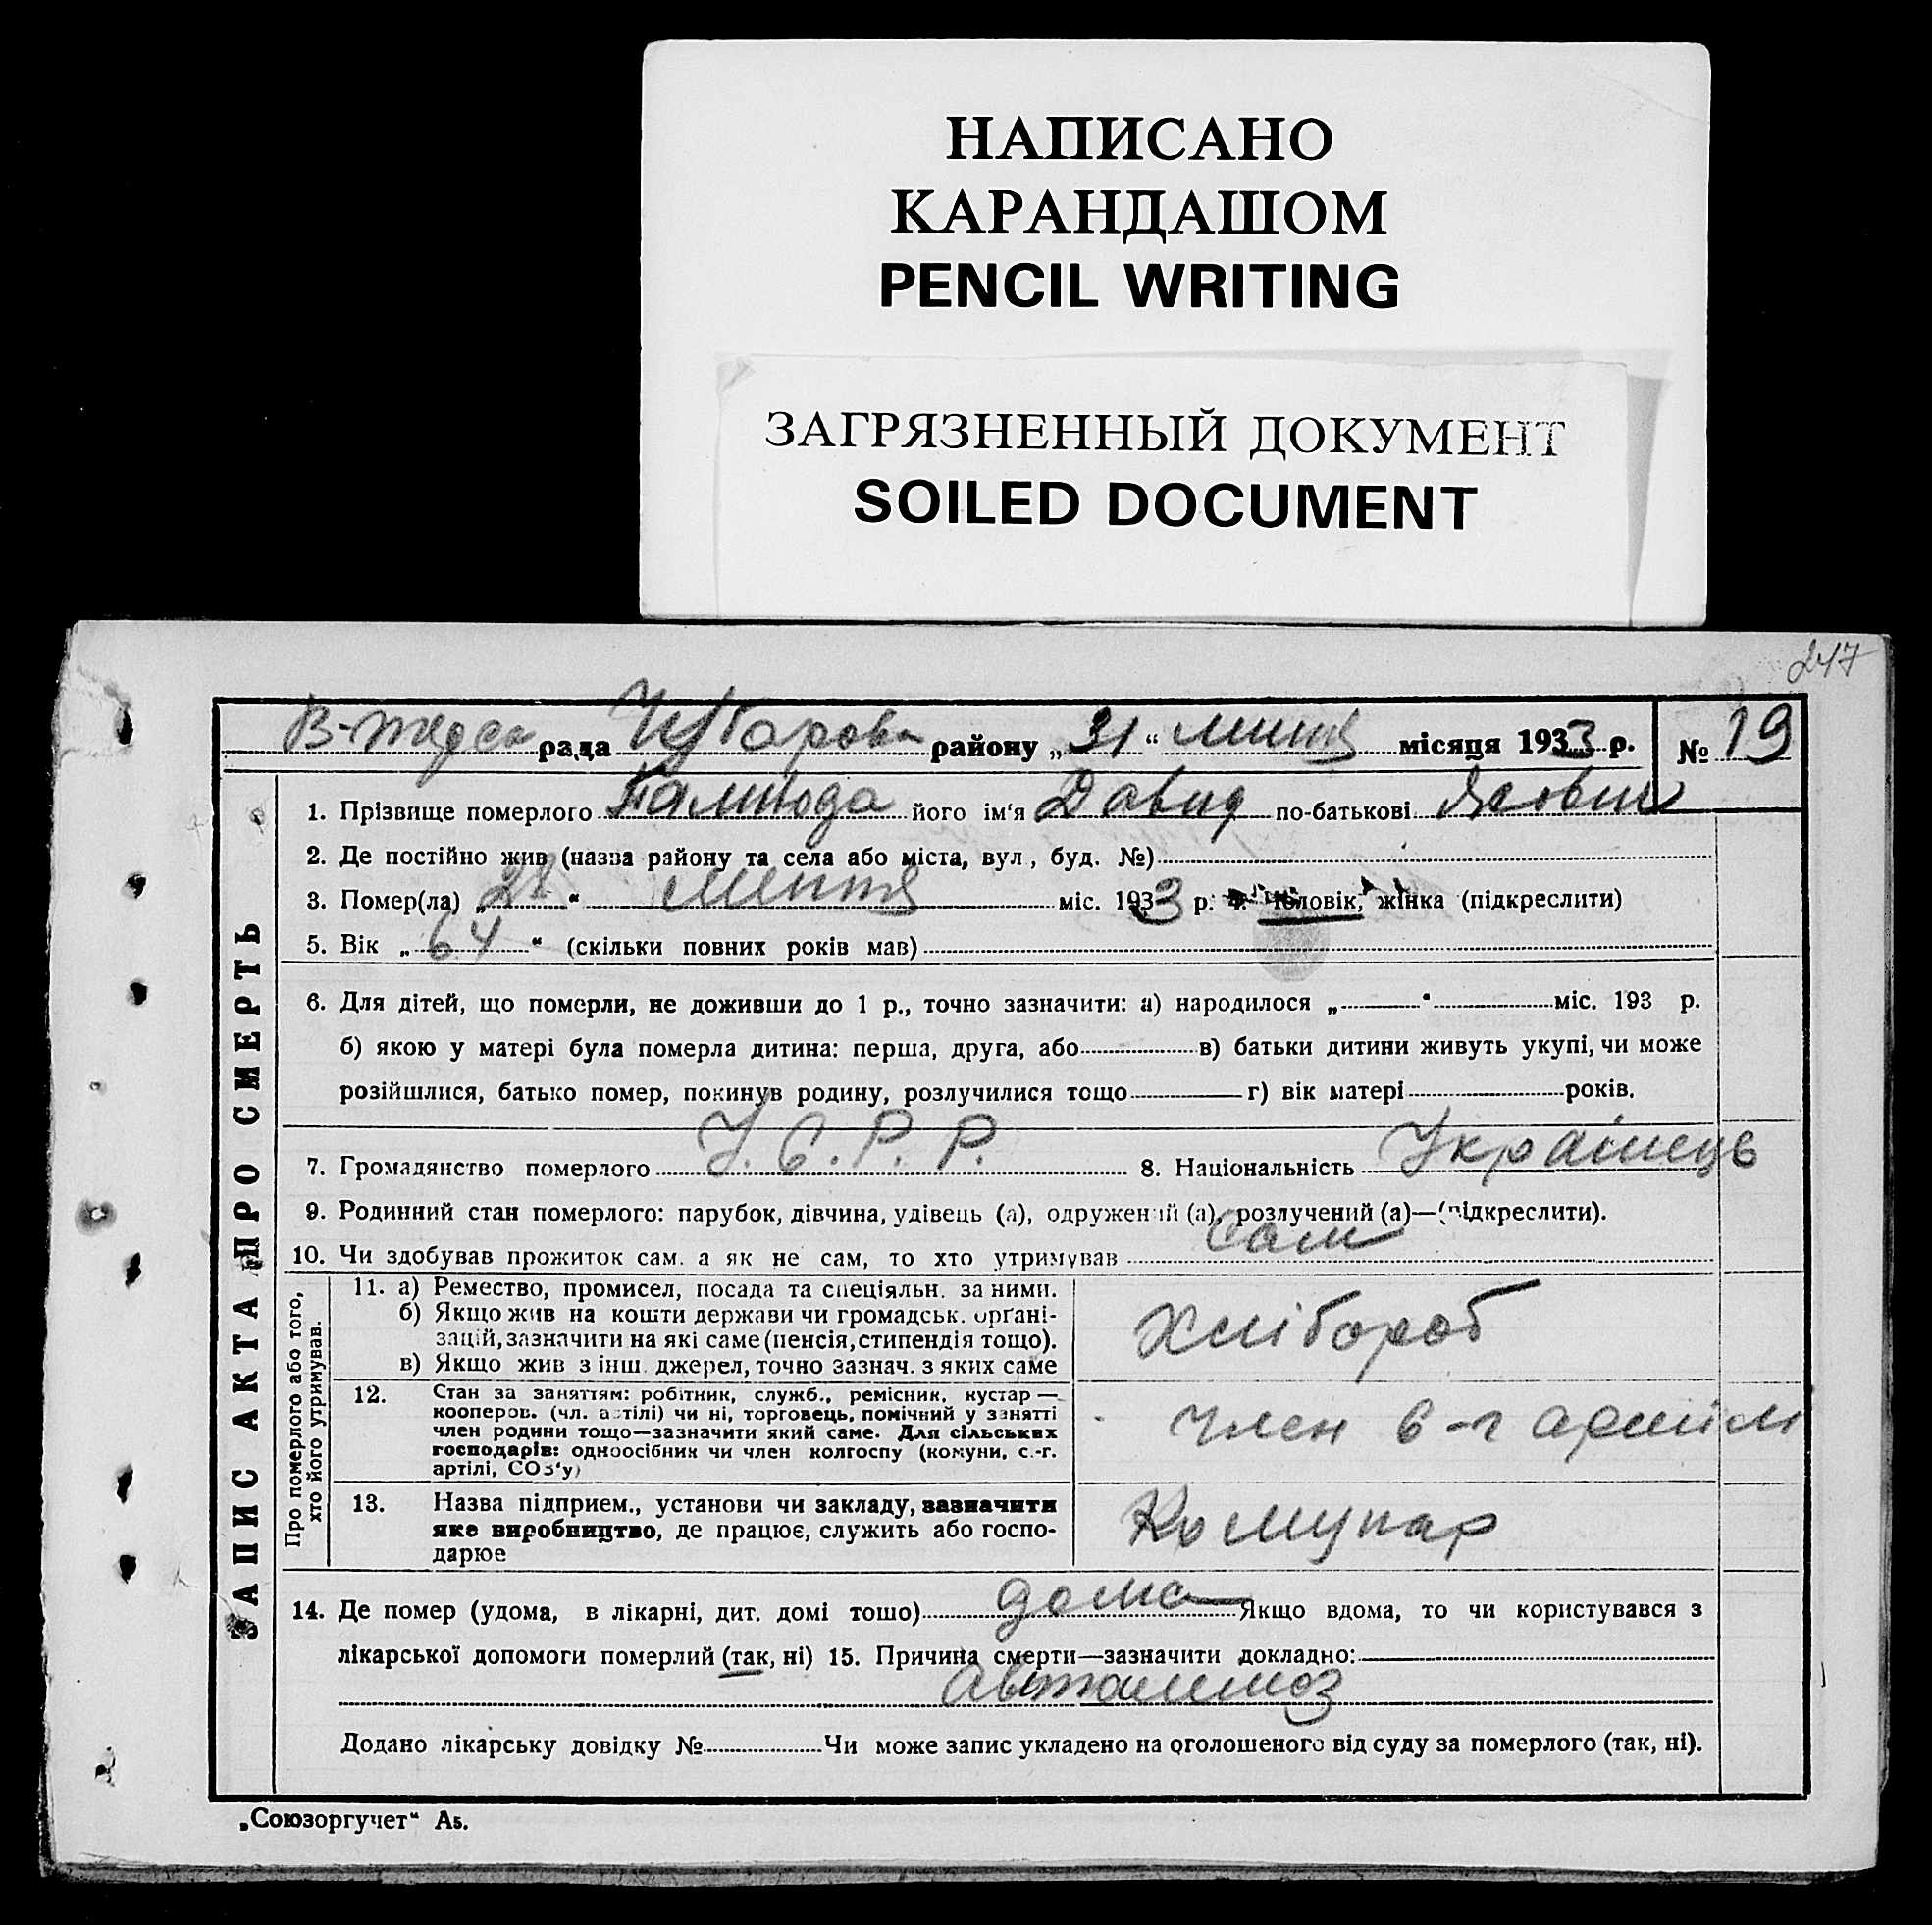 НАПИСАНО
КАРАНДАШОМ
PENCIL WRITING
ЗАГРЯЗНЕННЫЙ ДОКУМЕНТ
SOILED DOCUMENT
247
рада Чубарова району „31“ місяця 1933 р. № 19
ЗАПИС АКТА ПРО СМЕРТЬ
1. Прізвище померлого його ім‘я Давид по-батькові
2. Де постійно жив (назва району та села або міста, вул., буд. №)
3. Помер(ла) „28“ міс. 1933 р. чоловік, жінка (підкреслити)
5. Вік „64“ (скільки повних років мав)
6. Для дітей, що померли, не доживши до 1 р., точно зазначити: а) народилося „ “ міс. 193 р.
б) якою у матері була померла дитина: перша, друга, або в) батьки дитини живуть укупі, чи може
розійшлися, батько помер, покинув родину, розлучилися тощо г) вік матері років.
7. Громадянство померлого У.С.Р.Р. 8. Національність Українець
9. Родинний стан померлого: парубок, дівчина, удівець (а), одружений (а), розлучений (а)—(підкреслити).
10. Чи здобував прожиток сам, а як не сам, то хто утримував сам
Про померлого або того,
хто його утримував.
11. а) Ремество, промисел, посада та спеціяльн. за ними.
б) Якщо жив на кошти держави чи громадськ. орґані-
зацій, зазначити на які саме (пенсія, стипендія тощо).
в) Якщо жив з інш. джерел, точно зазнач. з яких саме
Хлібороб
12. Стан за заняттям: робітник, служб., ремісник, кустар —
кооперов. (чл. артілі) чи ні, торговець, помічний у занятті
член родини тощо—зазначити який саме. Для сільських
господарів: одноосібник чи член колгоспу (комуни, с.-г.
артілі, СОЗ‘у)
член с-г артіли
13. Назва підприєм., установи чи закладу, зазначити
яке виробництво, де працює, служить або госпо-
дарює
Комунар
14. Де помер (удома, в лікарні, дит. домі тошо) дома Якщо вдома, то чи користувався з
лікарської допомоги померлий (так, ні) 15. Причина смерти—зазначити докладно:
Додано лікарську довідку № Чи може запис укладено на оголошеного від суду за померлого (так, ні).
„Союзоргучет“ А5.